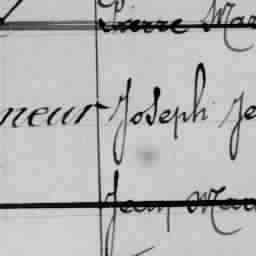 Pierre Mar
neur Joseph Je
Jean Mar